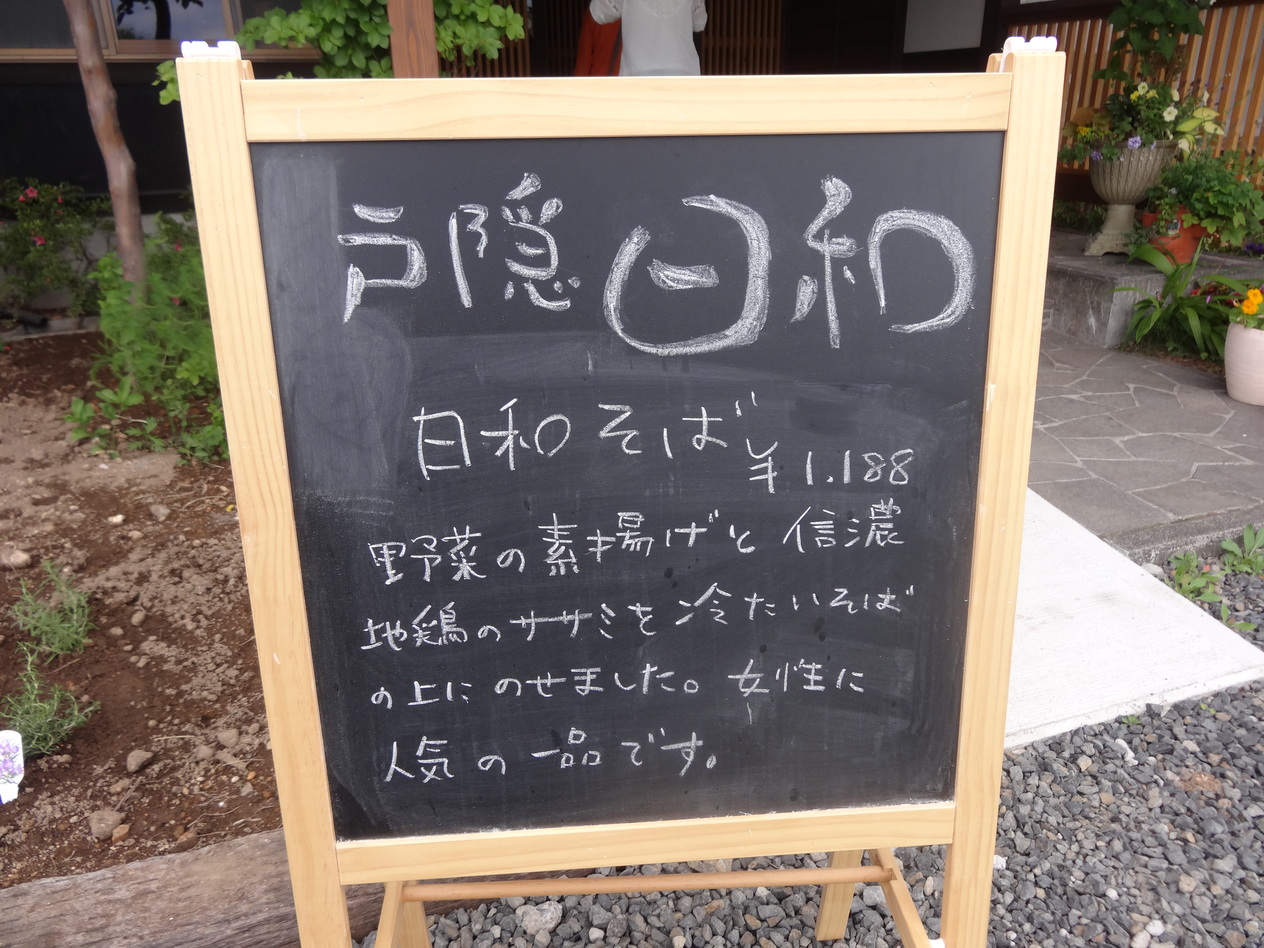 戸隠日和
日和そば
¥1.188
野菜の素揚げと信濃
地鶏のササミを冷たいそば
の上にのせました。女性に
人気の一品です。